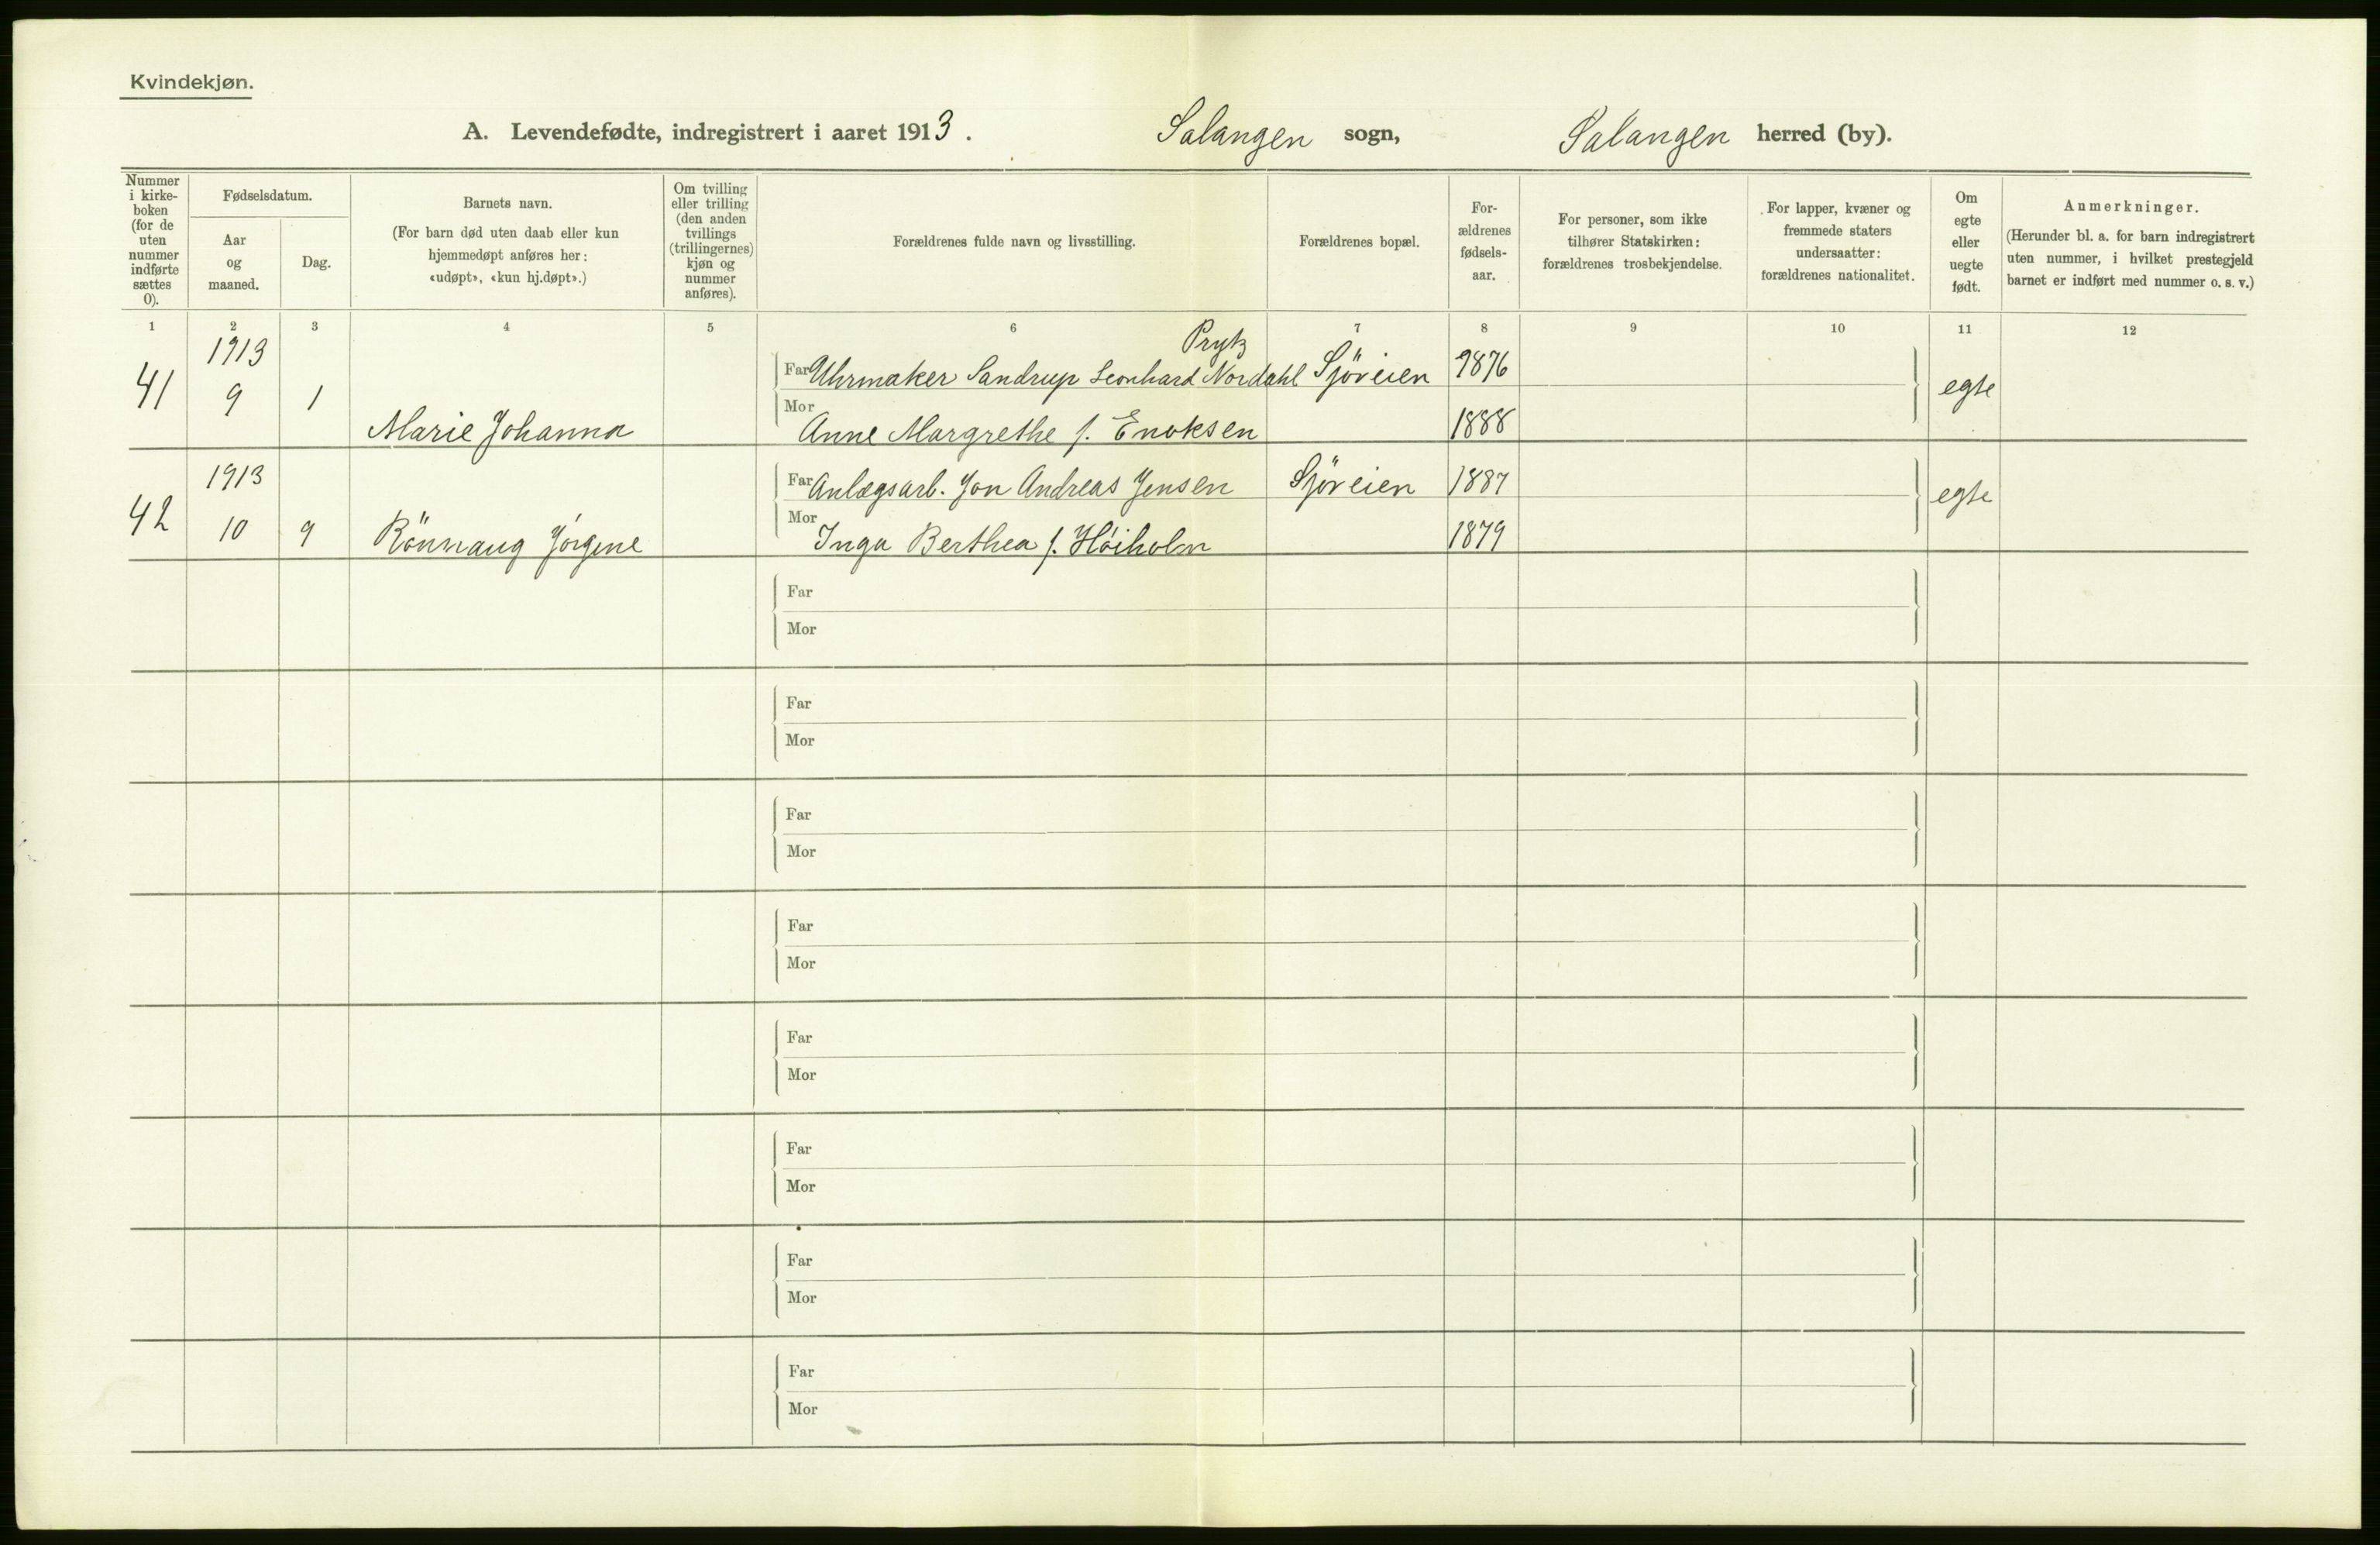 Kvindekjøn.
A. Levendefødte, indregistrert i aaret 1913. Salangen sogn, Salangen herred (by).
Nummer i kirke-boken (for de uten nummer indførte sættes 0).
Fødselsdatum.
Aar og maaned.
Dag.
Barnets navn.
(For barn død uten daab eller kun hjemmedøpt anføres her: «udøpt», «kun hj.døpt».)
Om tvilling eller trilling (den anden tvillings (trillingernes) kjøn og nummer anføres).
Forældrenes fulde navn og livsstilling.
Forældrenes bopæl.
For-ældrenes fødsels-aar.
For personer, som ikke tilhører Statskirken: forældrenes trosbekjendelse.
For lapper, kvæner og fremmede staters undersaatter: forældrenes nationalitet.
Om egte eller uegte født.
Anmerkninger.
(Herunder bl. a. for barn indregistrert uten nummer, i hvilket prestegjeld barnet er indført med nummer o. s. v.)
1 2 3 4 5 6 7 8 9 10 11 12
1913 Prytz
41 9 1 Far Uhrmaker Sandrup Leonhard Nordahl Sjöveien 1876 egte
Marie Johanna Mor Anne Margrethe f. Enoksen 1888
1913 Far Anlægsarb. Jon Andreas Jensen Sjöveien 1887 egte
42 10 9 Rönnaug Jörgine Mor Inga Berthea f. Höiholm 1879
Far
Mor
Far
Mor
Far
Mor
Far
Mor
Far
Mor
Far
Mor
Far
Mor
Far
Mor